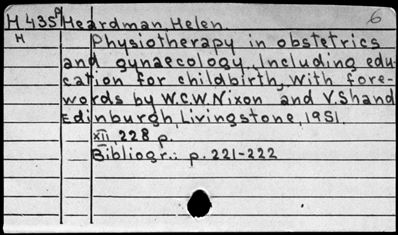 H 435a Heardman, Helen. 6
H Physiotherapy in obstetrics
and gynaecology, Including edu-
cation for childbirth, With fore-
words by W.C.W. Nixon and V. Shand
Edinburgh, Livingstone, 1951.
XII, 228 p.
Bibliogr.: p. 221-222